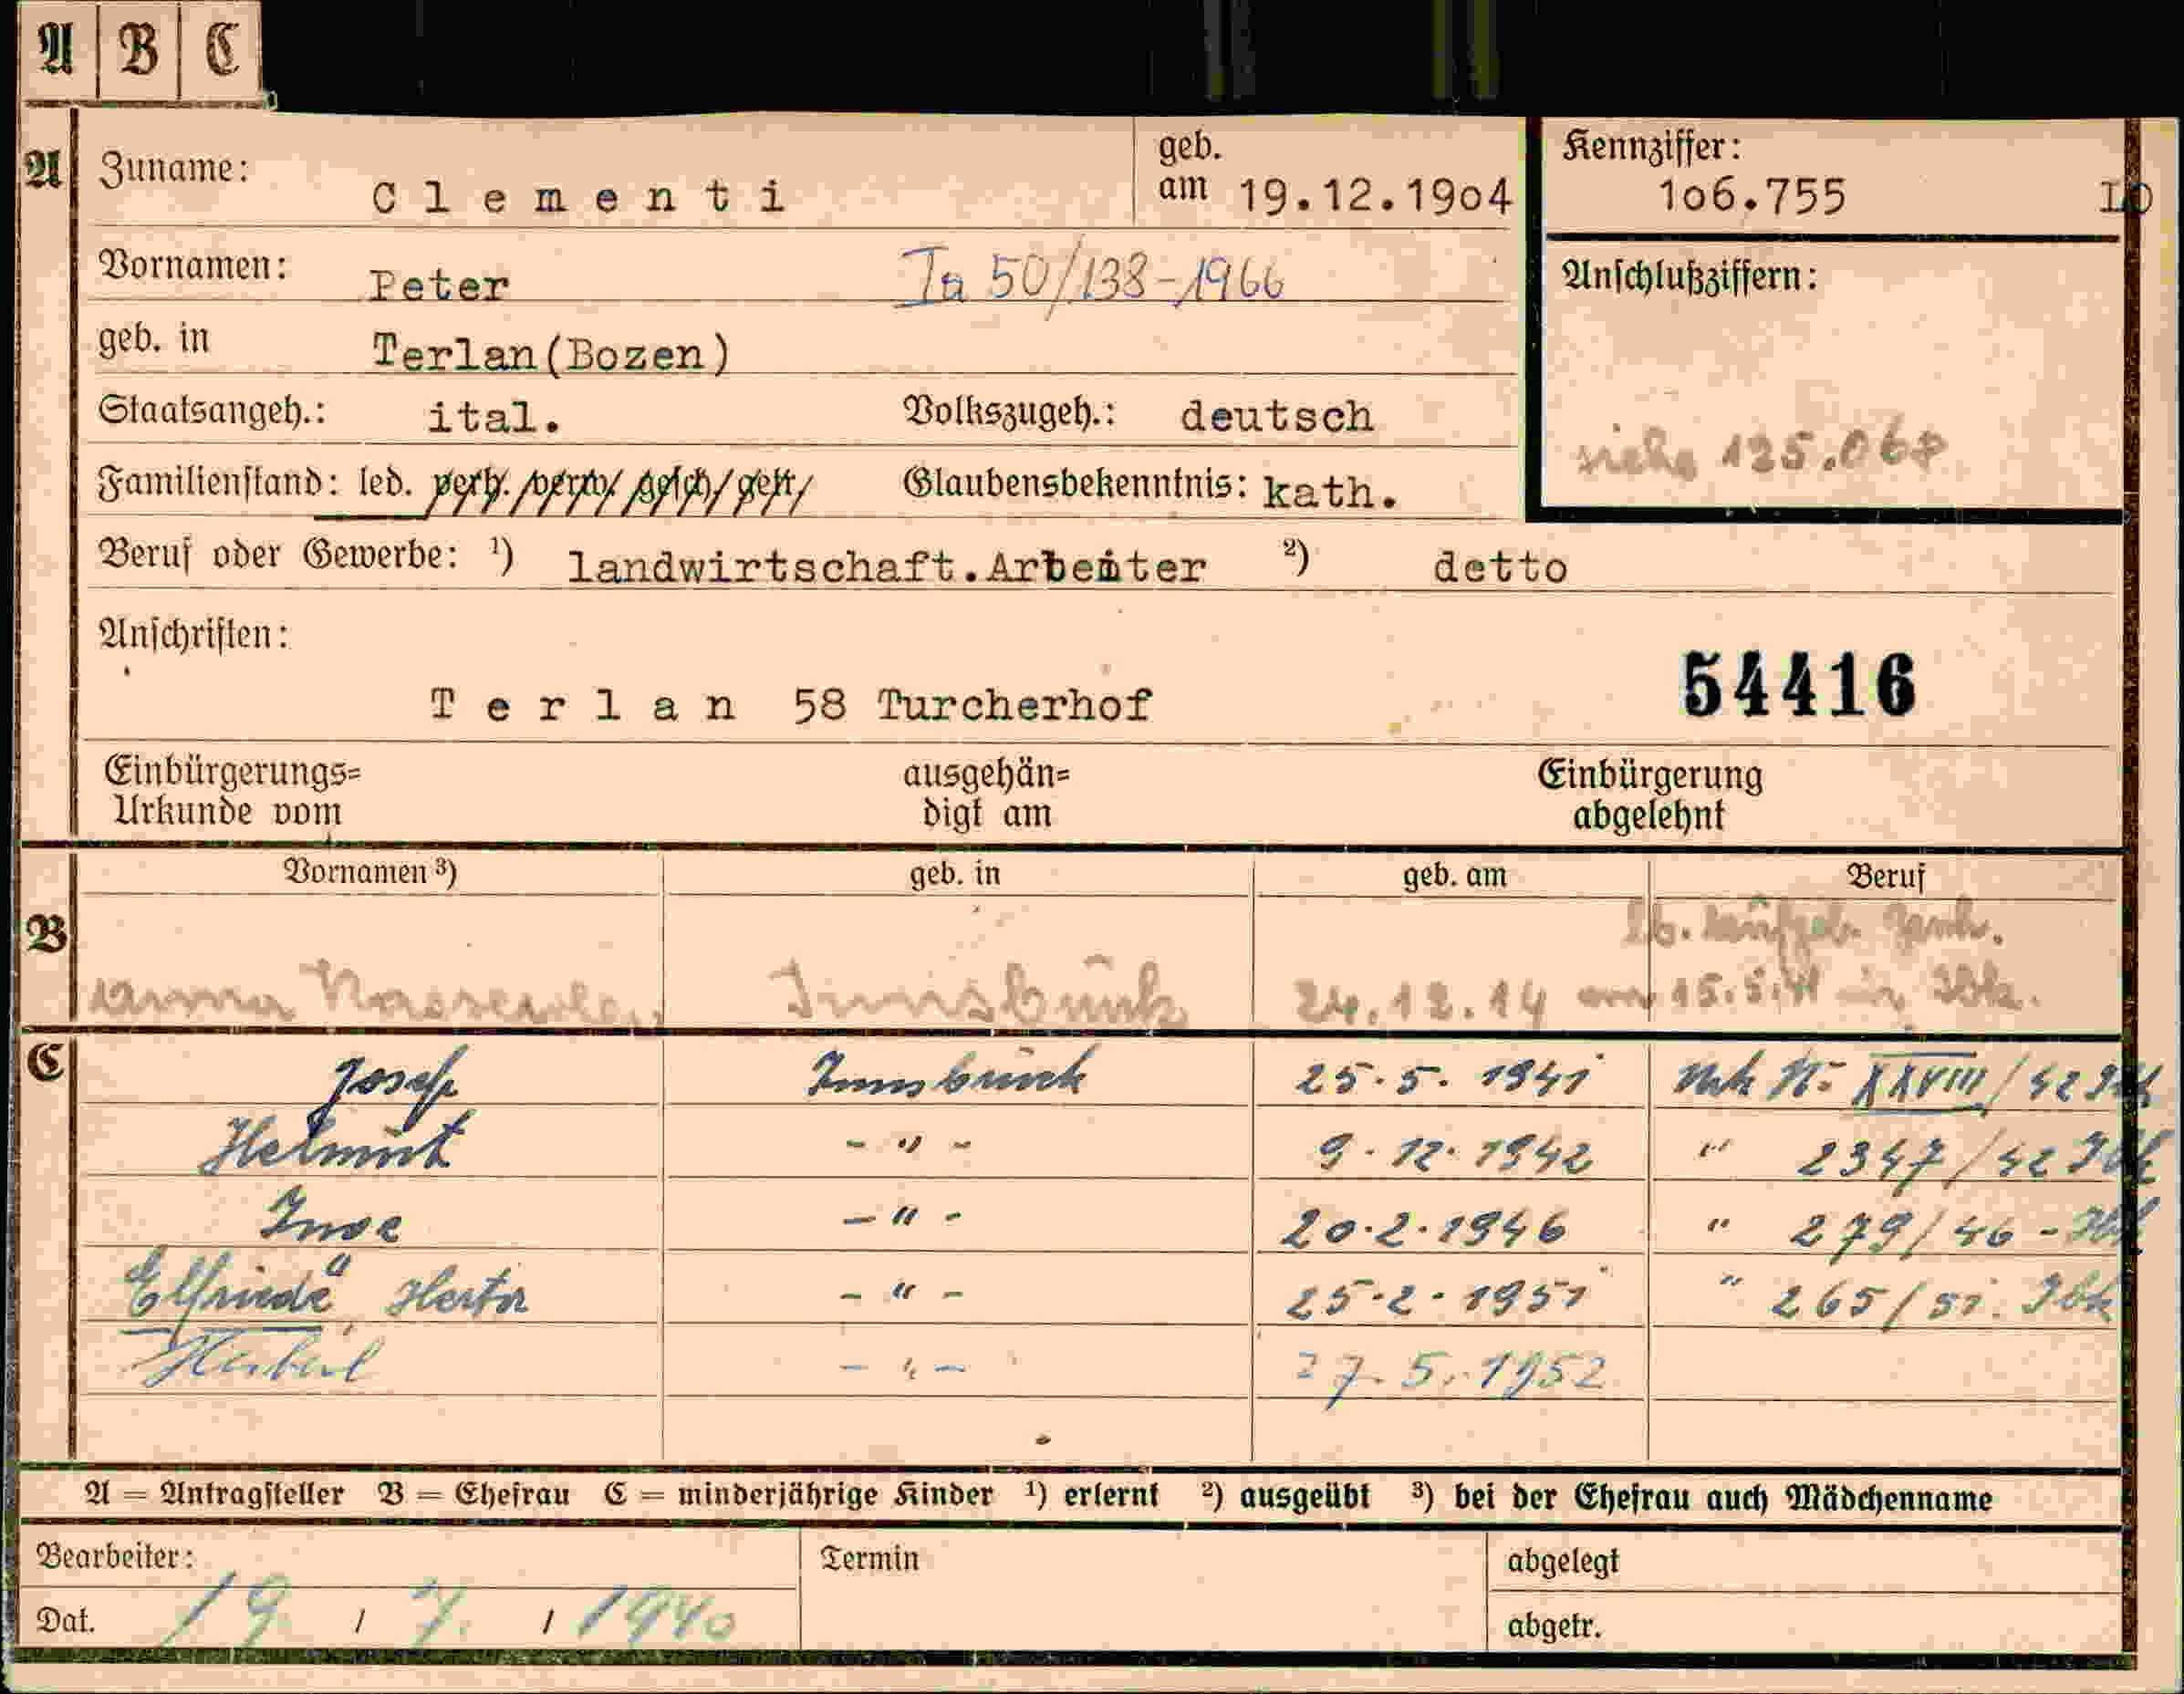 A B C
A Zuname: Clementi geb. am 19.12.19o4 Kennziffer: 1o6.755
Vornamen: Peter Ia 50/138-1966 Anschlußziffern:
geb. in Terlan(Bozen)
Staatsangeh.: ital. Volkszugeh.: deutsch
siehe 125.068
Familienstand: led. verh./verw./gesch/getr/ Glaubensbekenntnis: kath.
Beruf oder Gewerbe: ¹) landwirtschaft.Arbeiter ²) detto
Anschriften:
Terlan 58 Turcherhof 54416
Einbürgerungs= ausgehän= Einbürgerung
Urkunde vom digt am abgelehnt
Vornamen ³) geb. in geb. am Beruf
B
Anna Innsbruck 24.12.14 am 15.5.41 in Ibk.
C Josef Innsbruck 25.5.1941 XXVIII/42 Ibk
Helmut - " - 9.12.1942 " 2347/42 Ibk
Inge - " - 20.2.1946 " 279/46 - Ibk
"Elfriede", Herta - " - 25.2.1951 " 265/51. Ibk
Herbert - " - 27.5.1952
A = Antragsteller B = Ehefrau C = minderjährige Kinder ¹) erlernt ²) ausgeübt ³) bei der Ehefrau auch Mädchenname
Bearbeiter: Termin abgelegt
Dat. 19 / 7. / 1940 abgetr.